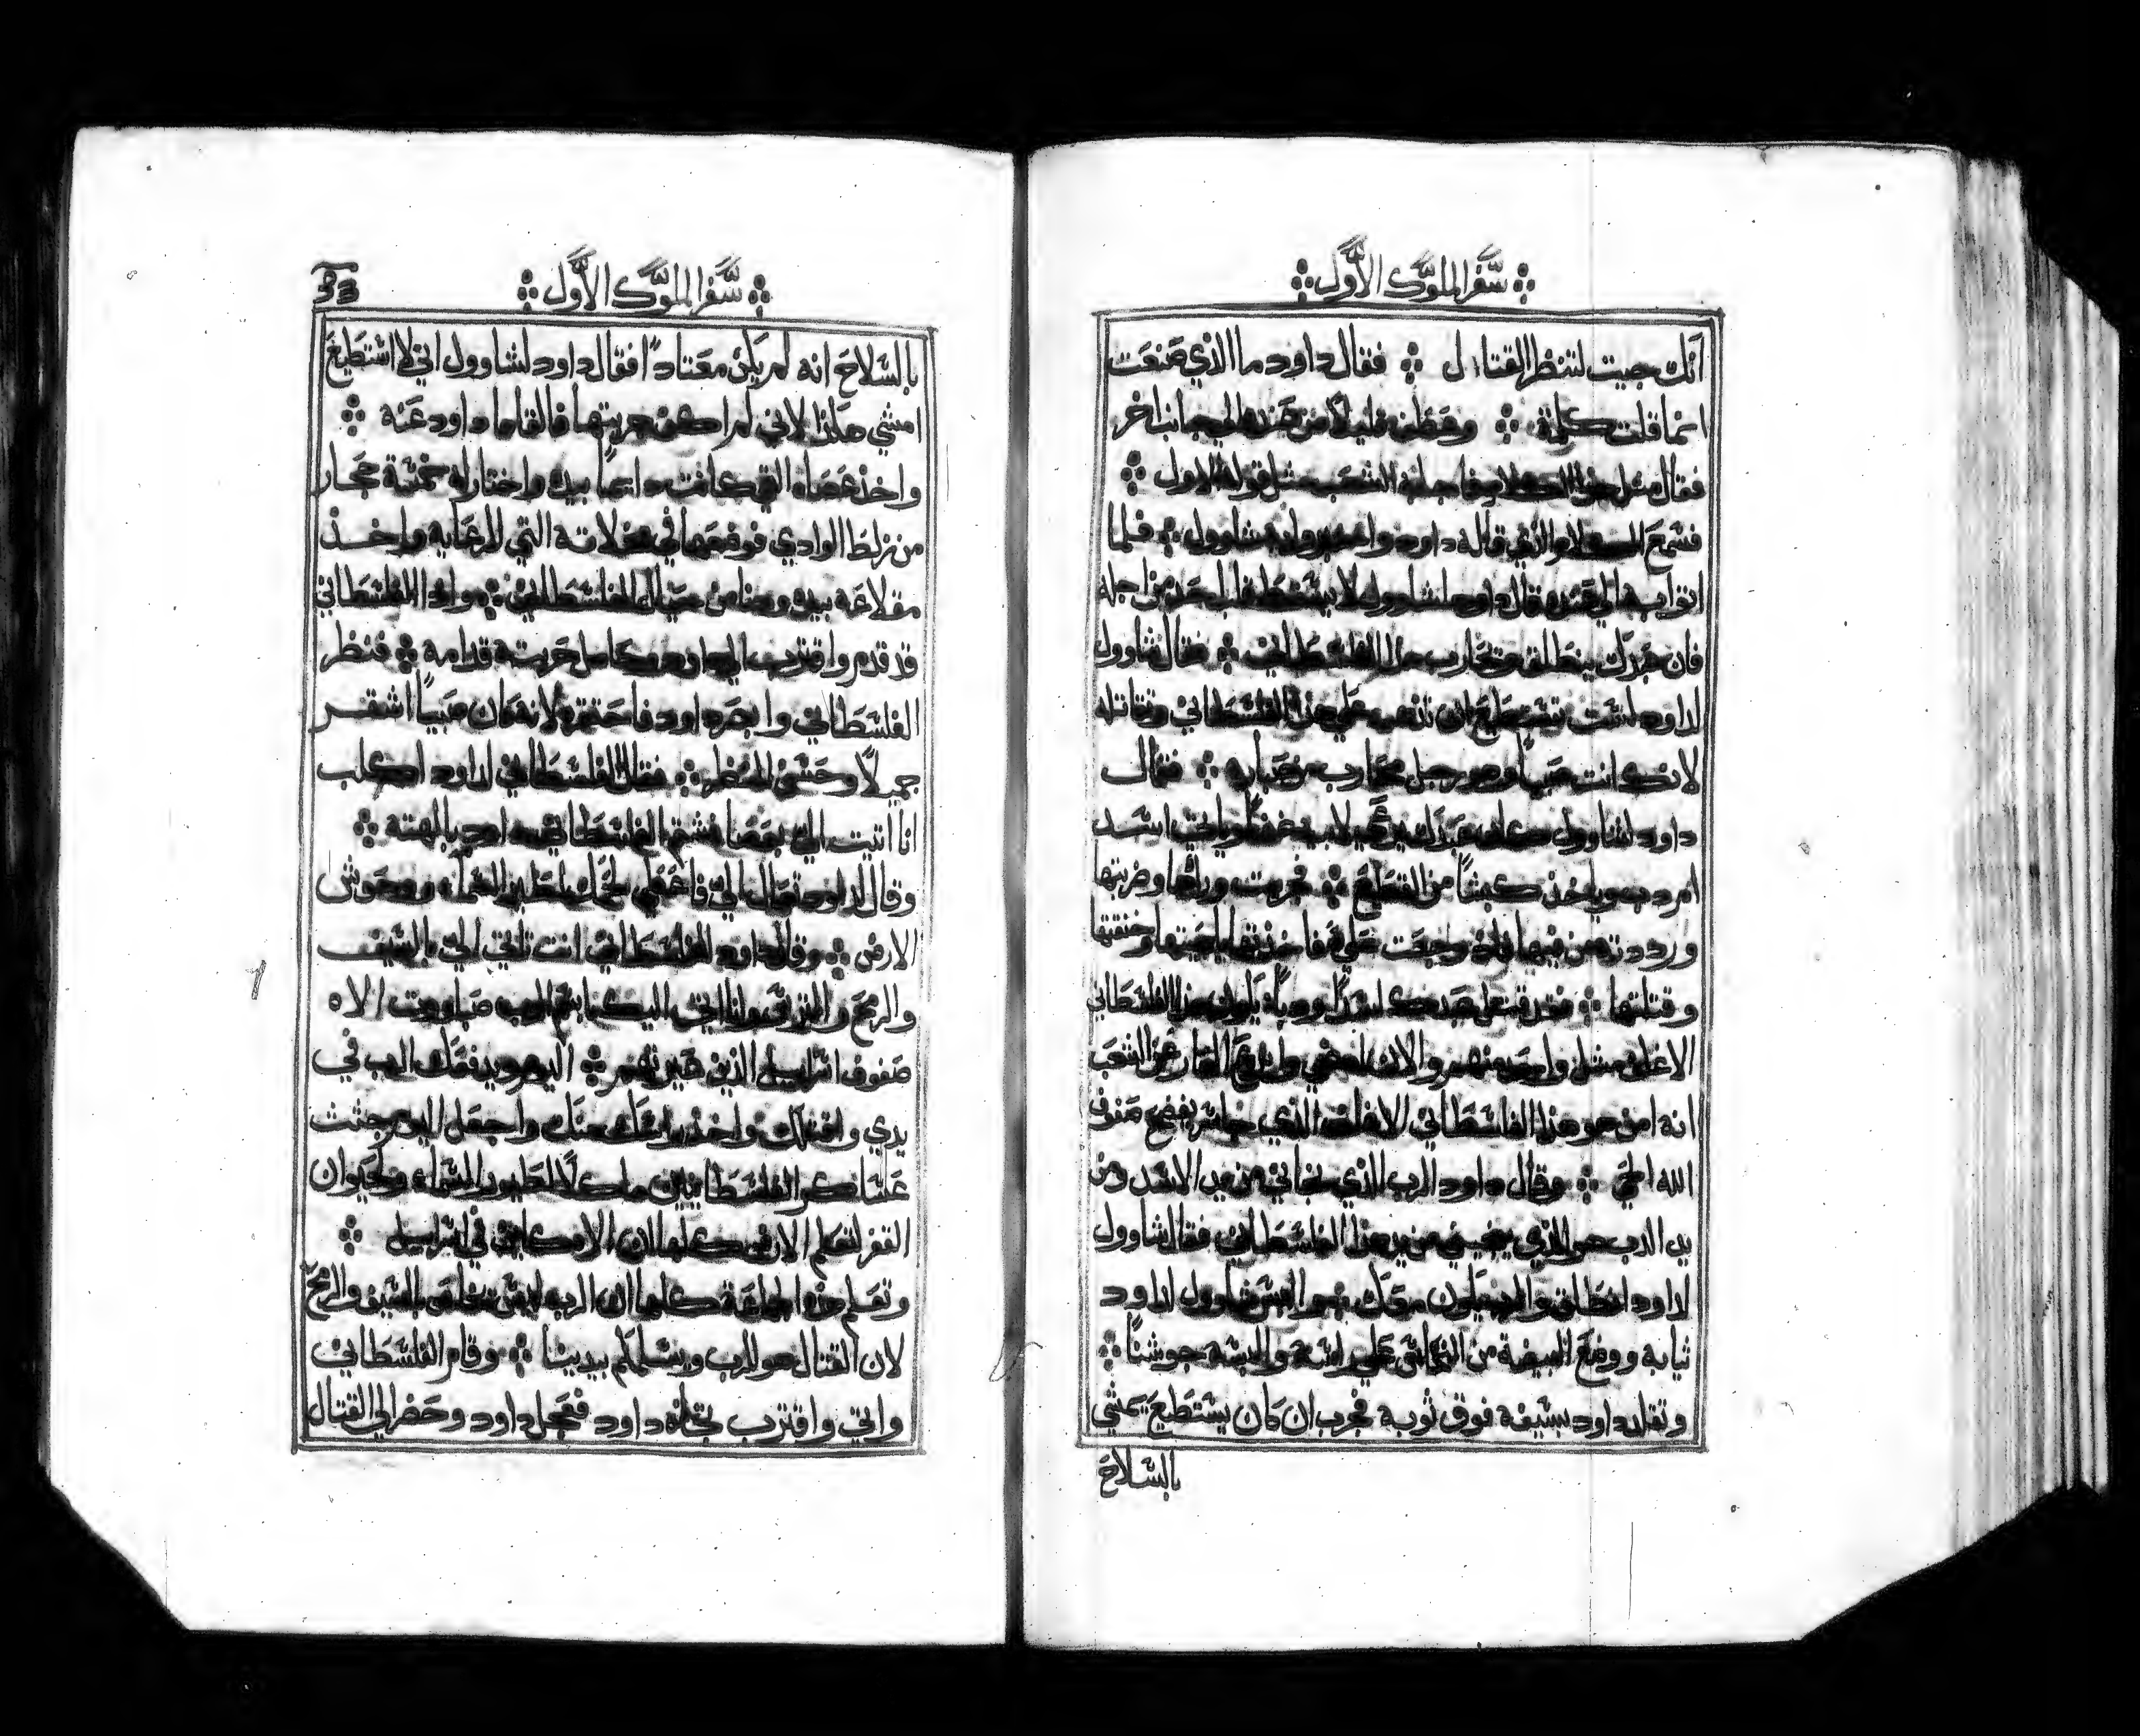 سفر الملوك الأول
انك جيت لتنظر القتال فقال داود ما الذي صنعت
انما قلت كلمة وعطف قليلا من عنده الي جانب اخر
فقال مثل هذا الكلام فاجابه الشعب مثل قوله الاول
فسمع الكلام الذي قاله داود واخبروا به شاوول فلما
اتوا به الي عنده قال داود لشاوول لا يسقط قلب احد من اجله
فان عبدك ينطلق ويحارب هذا الفلسطاني فقال شاوول
لداود لست تستطيع ان تذهب علي هذا الفلسطاني وتقاتله
لانك انت صبيا وهو رجل محارب من صباه فقال
داود لشاوول كان عبدك يرعي لابيه غنما وياتي اسد
امر دب وياخذ كبشا من القطيع فجريت وراها وضربتها
ورددته من فيها فاذ وثبت علي فاخذتها بلحيتها وخنقتها
وقتلتها فقد قتل عبدك اسدا ودبا يكون هذا الفلسطاني
الاغلف مثل واحد منهم والان امضي وارفع العار عن الشعب
انه امن هو هذا الفلسطاني الاغلف الذي جاسر يفضح صفوف
الله الحي وقال داود الرب الذي نجاني من يد الاسد ومن
يد الدب هو الذي ينجيني من يد هذا الفلسطاني فقال شاوول
لداود انطلق والرب يكون معك ثم البس شاوول لداود
ثيابه ووضع البيضة من النحاس علي راسه والبسه جوشنا
وتقلد داود بسيفه فوق ثوبه فجرب ان كان يستطيع يمشي
بالسلاح
سفر الملوك الأول
بالسلاح انه لم يكن معتادا فقال داود لشاوول اني لا استطيع
امشي هكذا لاني لم اكن جربتها فالقاها داود عنه
واخذ عصاه التي كانت دايما بيده واختار له خمسة حجار
من زلط الوادي فوضعها في مخلاته التي للرعايه واخذ
مقلاعه بيده وهنا من حيال الفلسطاني واذا الفلسطاني
قد قدم واقترب الي داود وحامل حربته قدامه فنظر
الفلسطاني وابصر داود فاحتقره لانه كان صبيا اشقر
جميلا وحسن المنظر فقال الفلسطاني لداود اكلب
انا اتيت الي بعصا فشتم الفلسطاني داود بالهته
وقال لداود تعال الي فاعطي لحمك لطير السماء ووحوش
الارض وقال داود للفلسطاني انت تاتي الي بالسيف
والرمح والترس وانا اتي اليك باسم الرب صباووت الاه
صفوف اسراييل الذين عيرتهم اليوم ويدفعك الرب في
يدي واقتلك واخذ راسك منك واجعل اليوم جثث
عساكر الفلسطانيين ماكلا لطيور السماء ولحيوان
القفر لتعلم الارض كلها ان الاه كاين في اسراييل
وتعلم هذه الجماعة كلها ان الرب ليس يخلص بالسيف والرمح
لان القتال هو للرب ويسلمكم بيدينا وقام الفلسطاني
واتي واقترب تجاه داود فعجل داود وحضر الي القتال